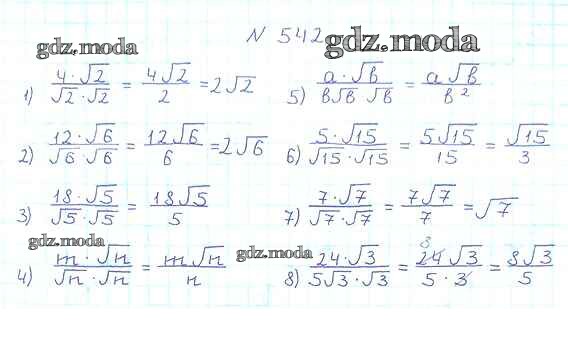 N 542
gdz.moda
gdz.moda
1) 4·√2 / √2·√2 = 4√2 / 2 = 2√2
5) a·√b / b√b √b = a√b / b²
2) 12·√6 / √6 √6 = 12√6 / 6 = 2√6
6) 5·√15 / √15·√15 = 5√15 / 15 = √15 / 3
3) 18·√5 / √5·√5 = 18√5 / 5
7) 7·√7 / √7·√7 = 7√7 / 7 = √7
gdz.moda
gdz.moda
4) m·√n / √n·√n = m√n / n
8) 24·√3 / 5√3·√3 = 8 24√3 / 5·3 = 8√3 / 5